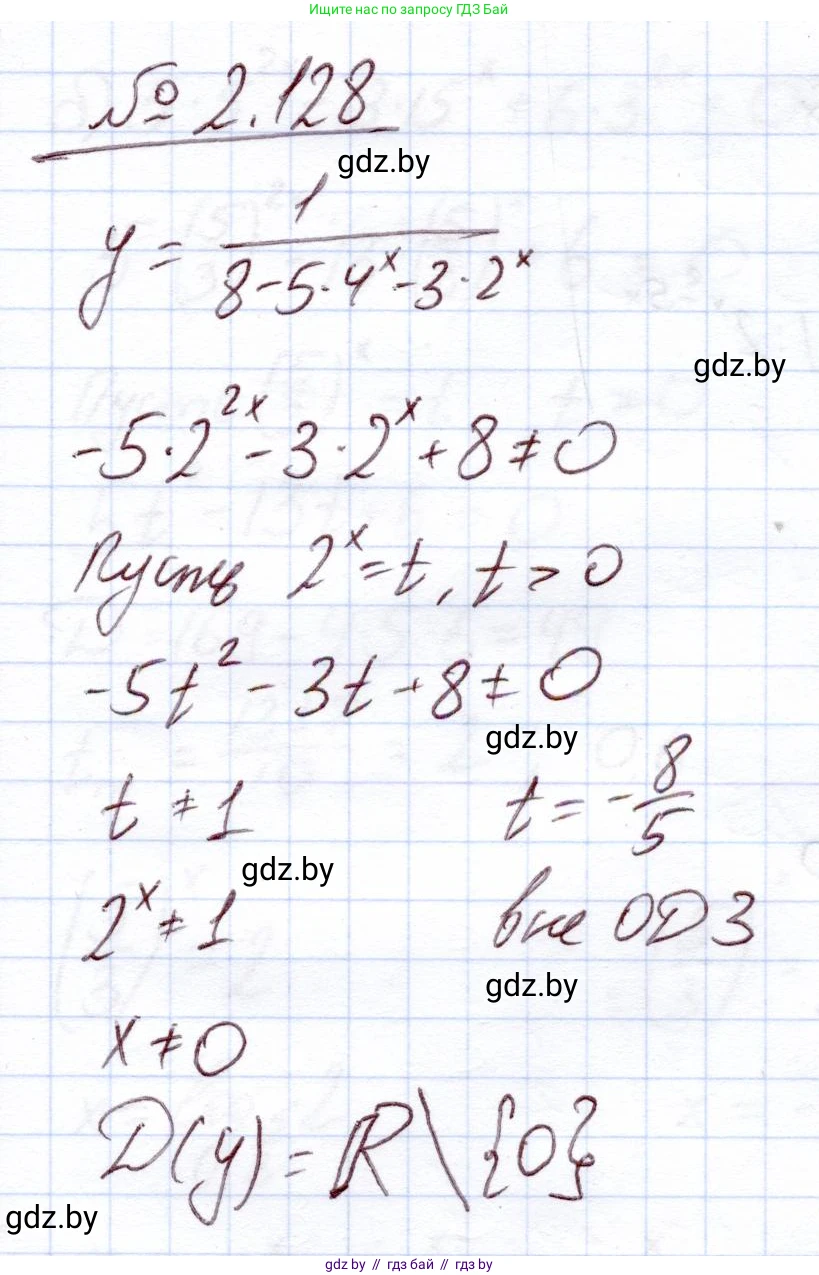 Ищите нас по запросу ГДЗ Бай
№ 2.128
gdz.by
y = 1/(8-5·4^x-3·2^x)
gdz.by
-5·2^{2x}-3·2^x+8≠0
Пусть 2^x=t, t>0
-5t^2-3t+8≠0
gdz.by
t≠1 t=-8/5
gdz.by
2^x≠1 вне ОДЗ
gdz.by
x≠0
D(y)=R\{0}
gdz.by
gdz.by // гдз бай // гдз by